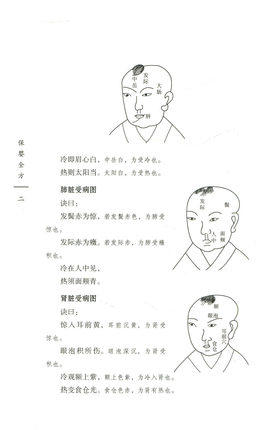 中岳
发际
大肠
保婴全方
二
冷即眉心白,中岳白,为受冷也。
热则太阳当。太阳白,为受热也。
肺脏受病图
诀曰:
发鬓赤为惊,若发鬓赤色,为肺受
惊也。
发际赤为癥。若发际赤,为肺受癥
积也。
冷在人中见,
热须面颊青。
发际
鬓
人中
面颊
肾脏受病图
诀曰:
惊人耳前黄,耳前沉黄,为肾受
惊也。
眼泡积所伤。眼泡深沉,为肾受
积也。
冷观额上紫,额上色紫,为冷入肾也。
热变食仓光。食仓色赤,为肾有热也。
额
眼泡
食仓